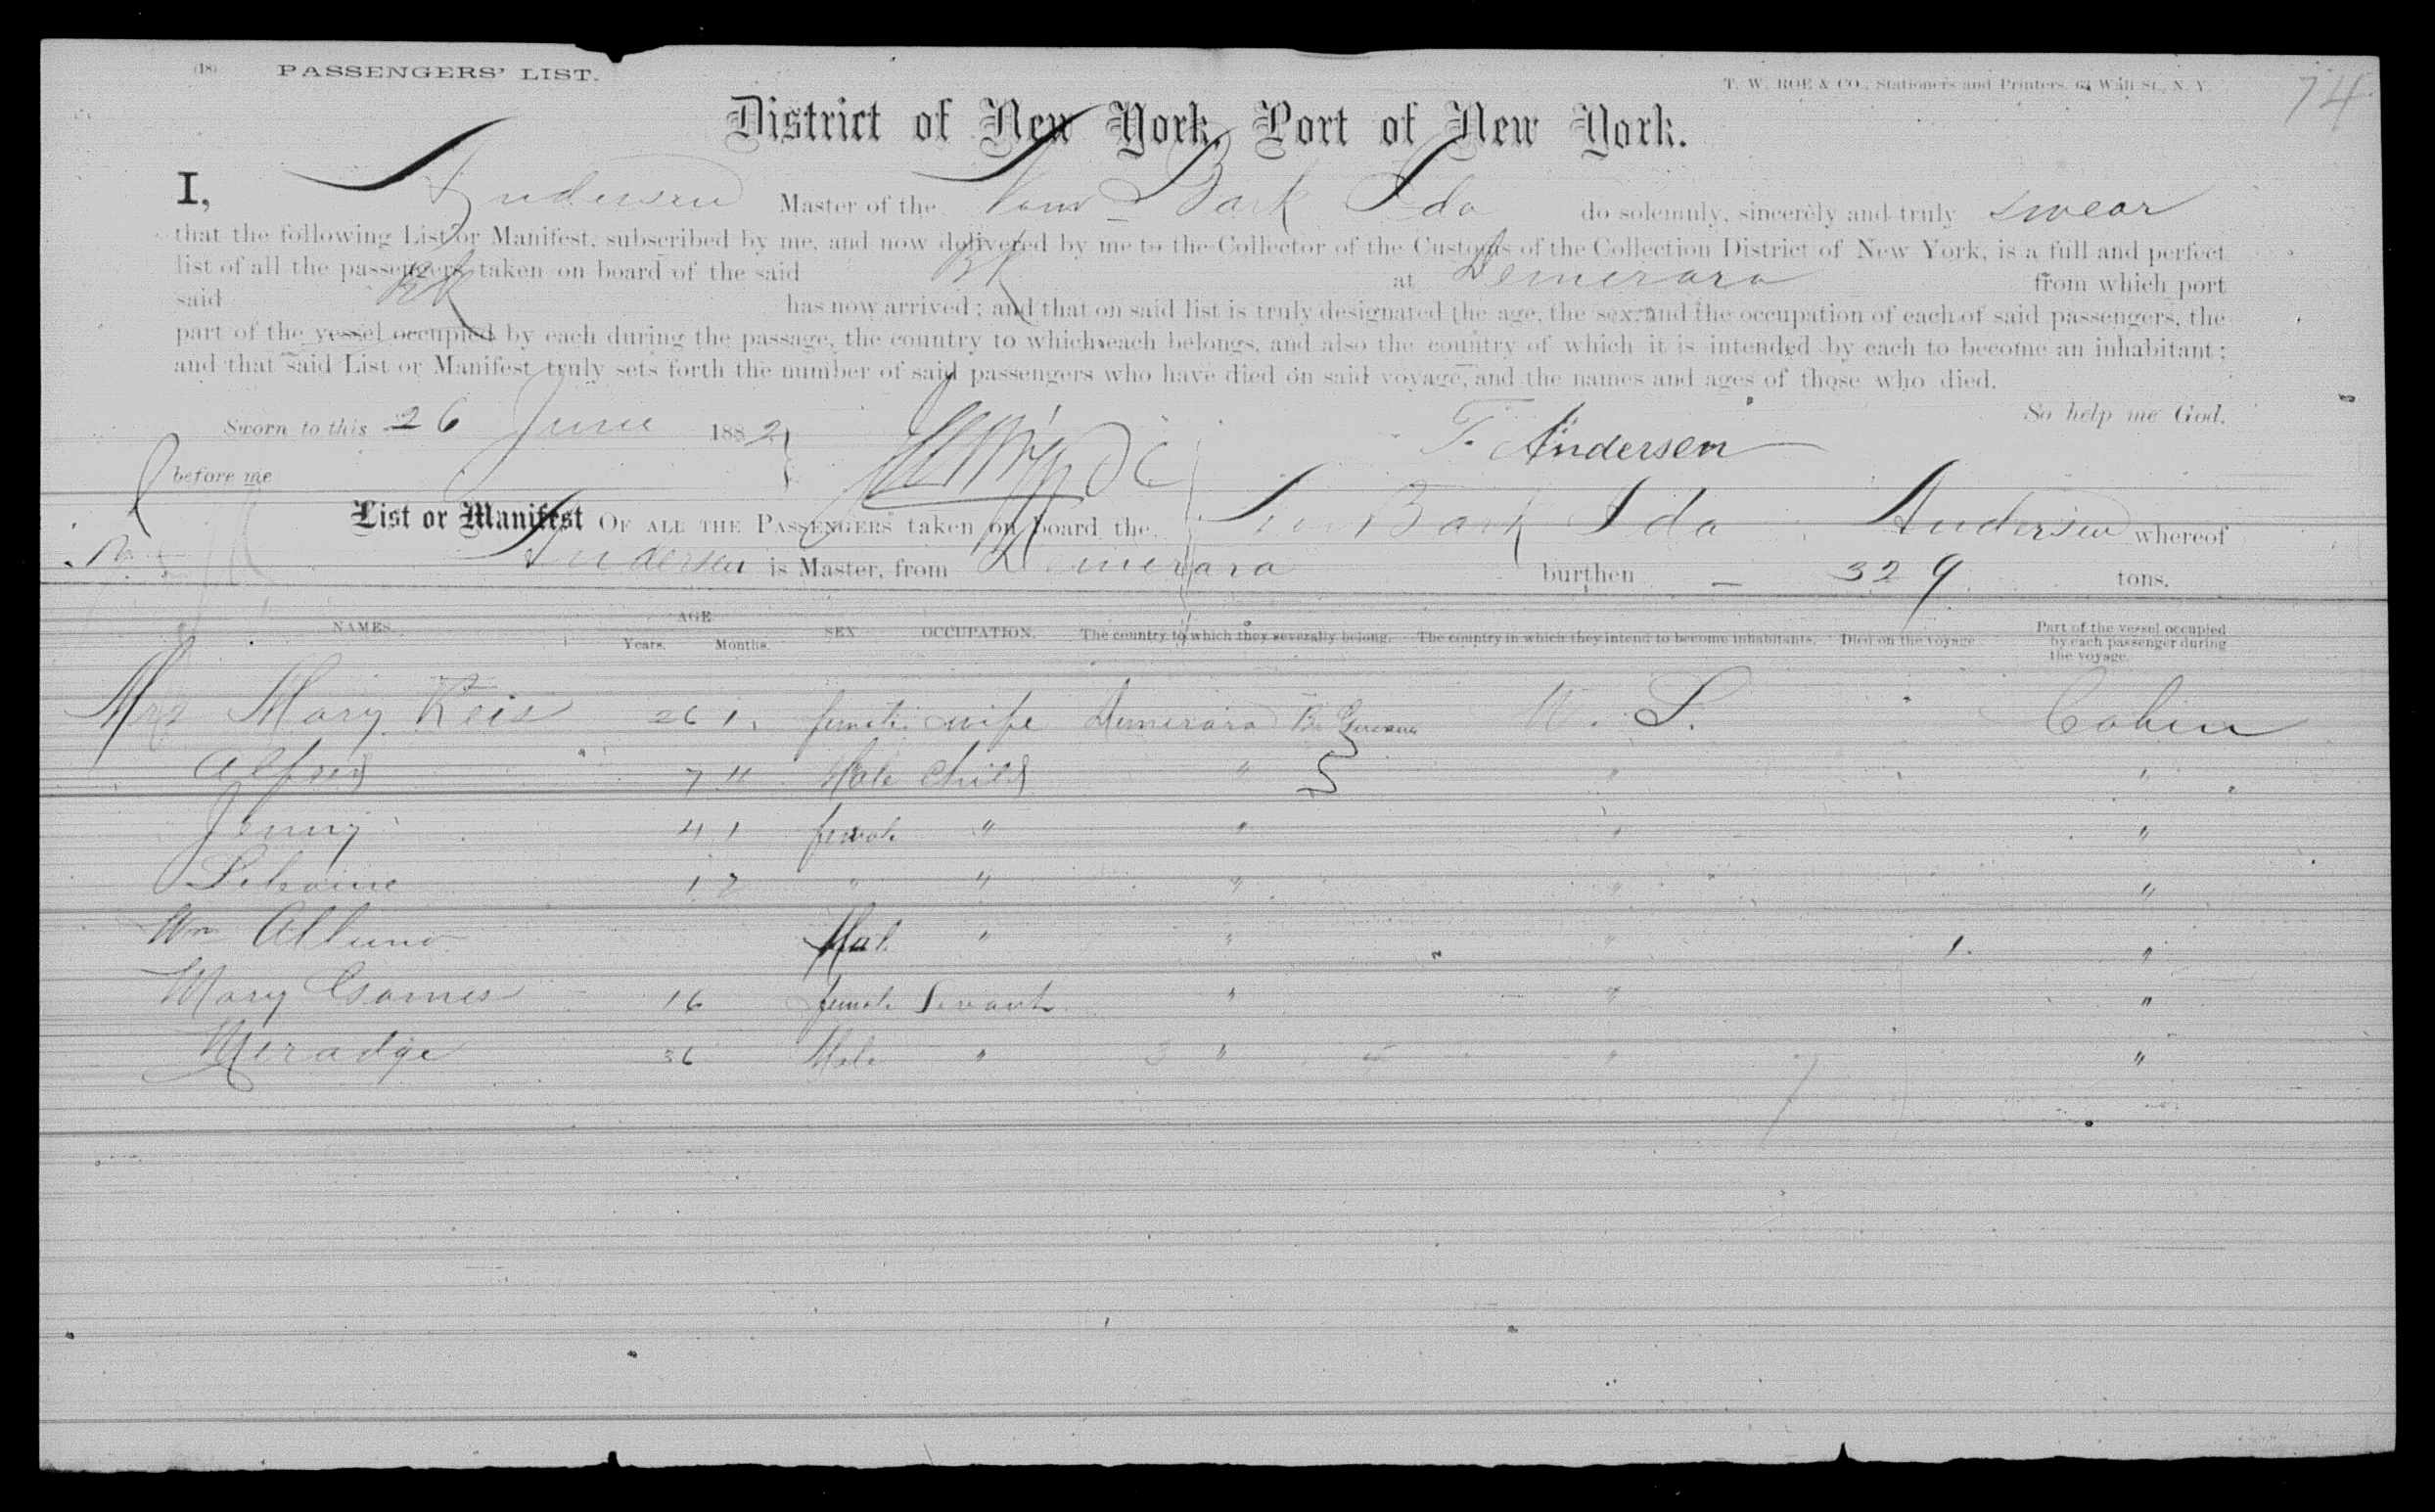 (18) PASSENGERS' LIST. T. W. ROE & CO., Stationers and Printers, 64 Wall St., N. Y. 74
District of New York, Port of New York.
I, Andersen Master of the Bark Ida do solemnly, sincerely and truly swear
that the following List or Manifest, subscribed by me, and now delivered by me to the Collector of the Customs of the Collection District of New York, is a full and perfect
list of all the passengers taken on board of the said Bk at Demerara from which port
said Bk has now arrived; and that on said list is truly designated the age, the sex, and the occupation of each of said passengers, the
part of the vessel occupied by each during the passage, the country to which each belongs, and also the country of which it is intended by each to become an inhabitant;
and that said List or Manifest truly sets forth the number of said passengers who have died on said voyage, and the names and ages of those who died.
So help me God.
Sworn to this 26 June 1882 T. Andersen
before me
List or Manifest OF ALL THE PASSENGERS taken on board the Bark Ida Andersen whereof
Andersen is Master, from Demerara burthen – 329 tons.
NAMES. AGE Years. Months. SEX OCCUPATION. The country to which they severally belong. The country in which they intend to become inhabitants. Died on the voyage Part of the vessel occupied by each passenger during the voyage.
Mrs Mary Reis 26 1 female wife Demerara B. Guiana U. S. Cabin
Alfred 7 " Male Child " " "
Jenny 4 1 female " " " "
1 2 " " " " "
Wm Male " " " 1. "
Mary Gomes 16 female Servant " " "
36 Male " " " "